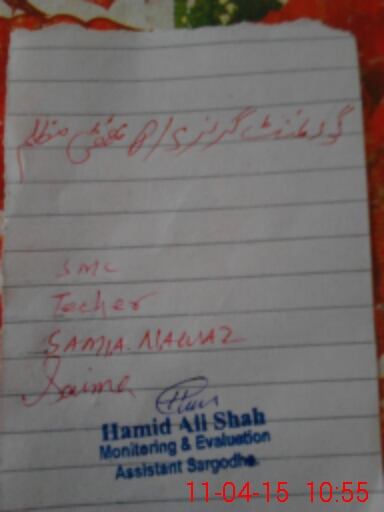 گورنمنٹ گرلز ی/P
SMC
Techer
SAMIA NAWAZ
Saima
Hamid Ali Shah
Monitering & Evaluation
Assistant Sargodha.
11-04-15 10:55